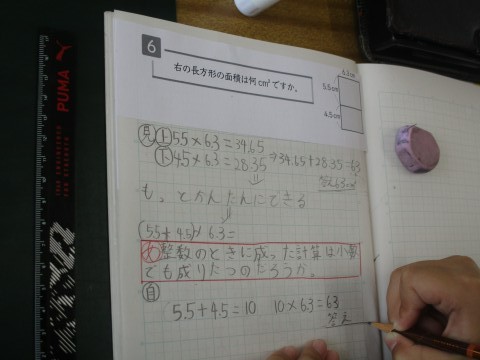 6
右の長方形の面積は何cm²ですか。
6.3cm
5.5cm
4.5cm
PUMA
見 上 5.5×6.3=34.65
下 4.5×6.3=28.35 ⇒34.65+28.35=63
答え63cm²
も、とかんたんにできる
(5.5+4.5)×6.3=
め 整数のときに成った計算は小数
でも成りたつのだろうか。
自
5.5+4.5=10 10×6.3=63
答え